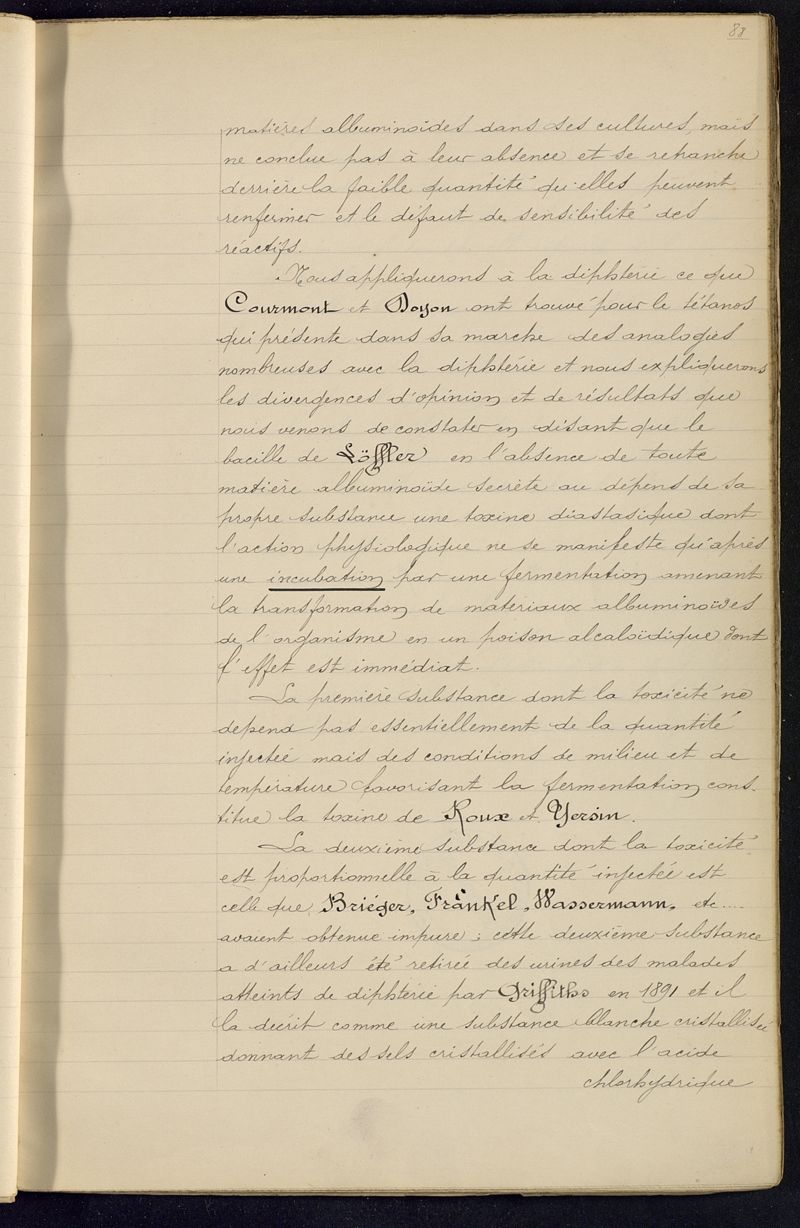 88
matières albuminoïdes dans ses cultures, mais
ne conclue pas à leur absence et se retranche
derrière la faible quantité qu'elles peuvent
renfermer et le défaut de sensibilité des
réactifs.
Nous appliquerons à la diphtérie ce que
Courmont et Doyon ont trouvé pour le tétanos
qui présente dans sa marche des analogies
nombreuses avec la diphtérie et nous expliquerons
les divergences d'opinion et de résultats que
nous venons de constater en disant que le
bacille de Löffler en l'absence de toute
matière albuminoïde secrète au dépens de sa
propre substance une toxine diastasique dont
l'action physiologique ne se manifeste qu'après
une incubation par une fermentation amenant
la transformation de matériaux albuminoïdes
de l'organisme en un poison alcaloïdique dont
l'effet est immédiat.
La première substance dont la toxicité ne
dépend pas essentiellement de la quantité
injectée mais des conditions de milieu et de
température favorisant la fermentation cons-
titue la toxine de Roux et Yersin.
La deuxième substance dont la toxicité
est proportionnelle à la quantité injectée est
celle que Briéger, Fränkel, Wassermann, etc....
avaient obtenue impure ; cette deuxième substance
a d'ailleurs été retirée des urines des malades
atteints de diphtérie par Griffiths en 1891 et il
la décrit comme une substance blanche cristallisée
donnant des sels cristallisés avec l'acide
chlorhydrique